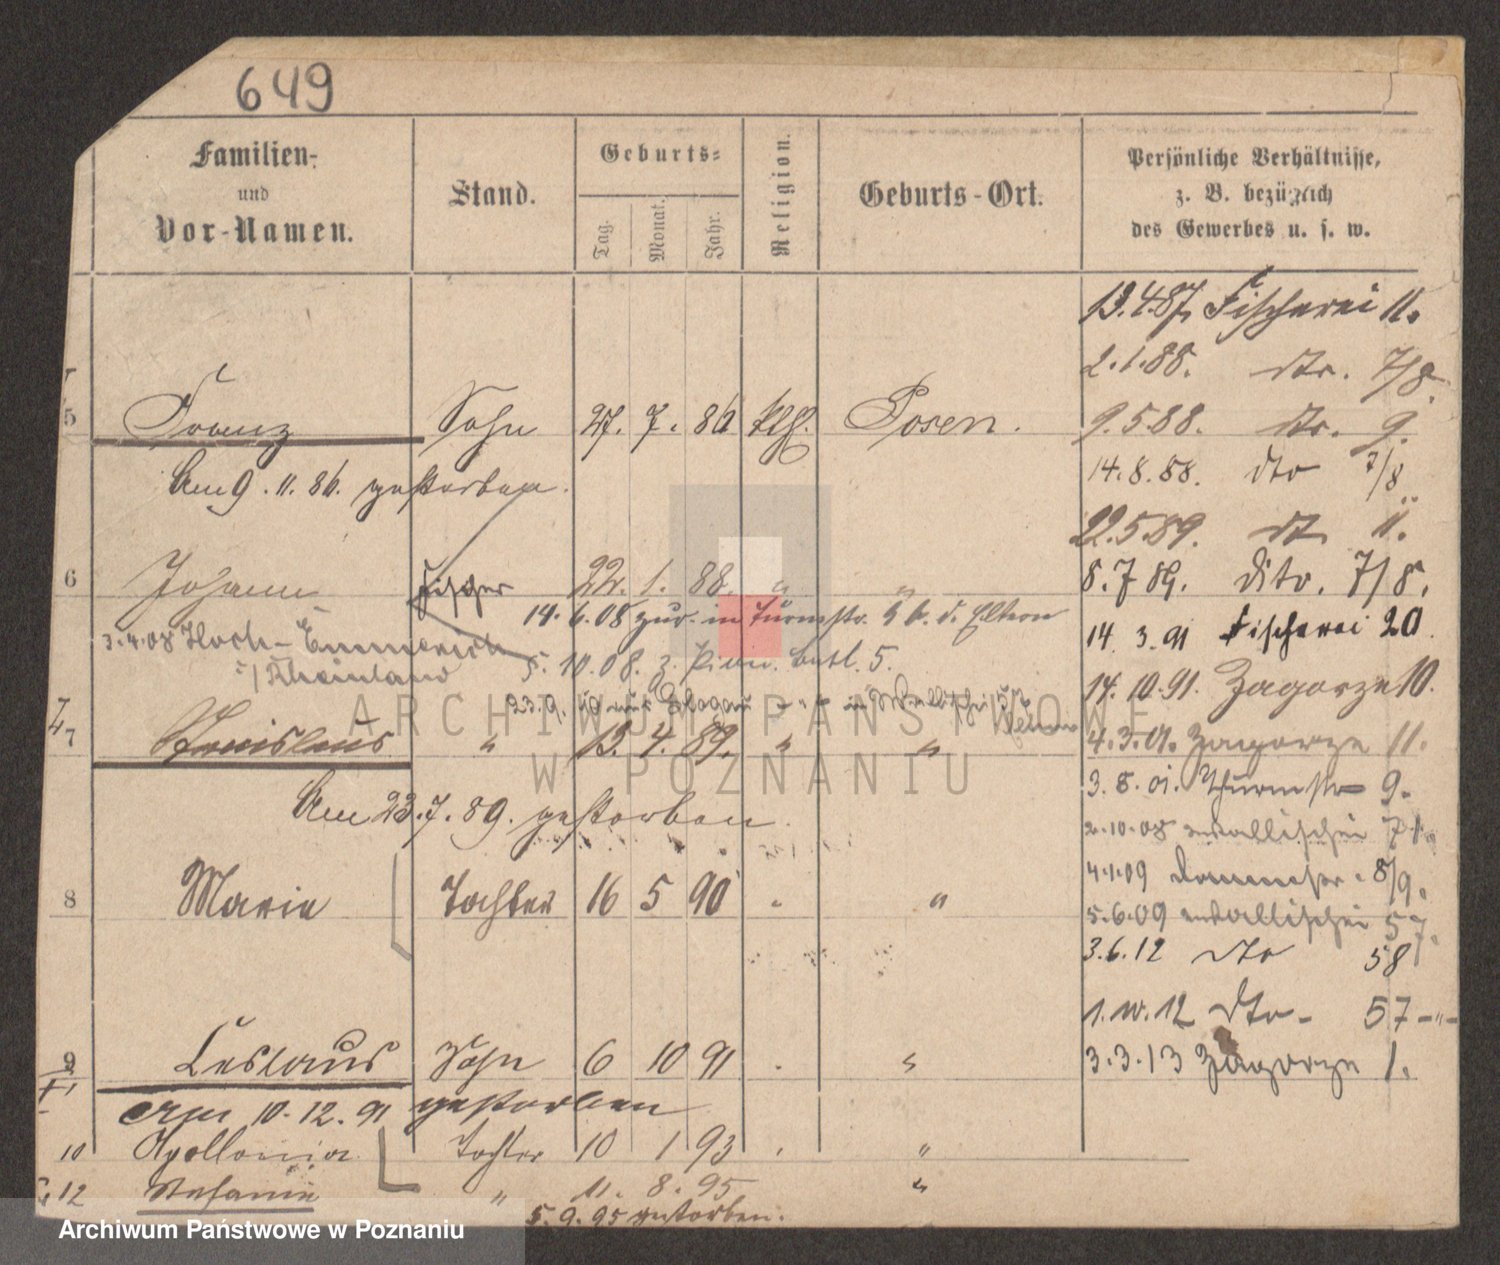 649
Familien- und Vor-Namen. Stand. Geburts- Tag. Monat. Jahr. Religion. Geburts-Ort. Persönliche Verhältnisse, z. B. bezüglich des Gewerbes u. s. w.
13.4.87. Fischerei 11.
2.1.88. dto. 7/8.
5 Franz Sohn 27. 7. 86 kth. Posen. 9.5.88. dto. 9.
Am 9. 11. 86. gestorben. 14.8.88. dto 7/8
22.5.89. dt 11.
6 Johann Fischer 22. 1. 88. " " 8.7.89. dito. 7/8.
14.6.08 zur. in Turmstr. d. Eltern
14. 3. 91 Fischerei 20.
3.4.08 Hoch-Emmerich
5. 10. 08. z. Pion. Batl. 5.
/Rheinland
14. 10. 91. Zagorze 10.
23.9. aus Glogau in Wallischei
7 Stanislaus " 13. 4. 89. " " 4.3.01. Zagorze 11.
3. 8. 01. Thurmstr 9.
Am 23.7.89. gestorben.
2.10.08 Wallischei 71.
8 Marie Tochter 16 5 90 " " 4.1.09 Dammstr. 8/9.
5.6.09 Wallischei 57.
3.6.12 dto 58
1. 10. 12 dto - 57 -"-
9 Ceslaus Sohn 6 10 91 " " 3.3.13 Zagorze 1.
Am 10. 12. 91 gestorben
10 Apollonia Tochter 10 1 93 " "
12 Stefanie " 11. 8. 95 "
5. 9. 95 gestorben.
ARCHIWUM PAŃSTWOWE
W POZNANIU
Archiwum Państwowe w Poznaniu